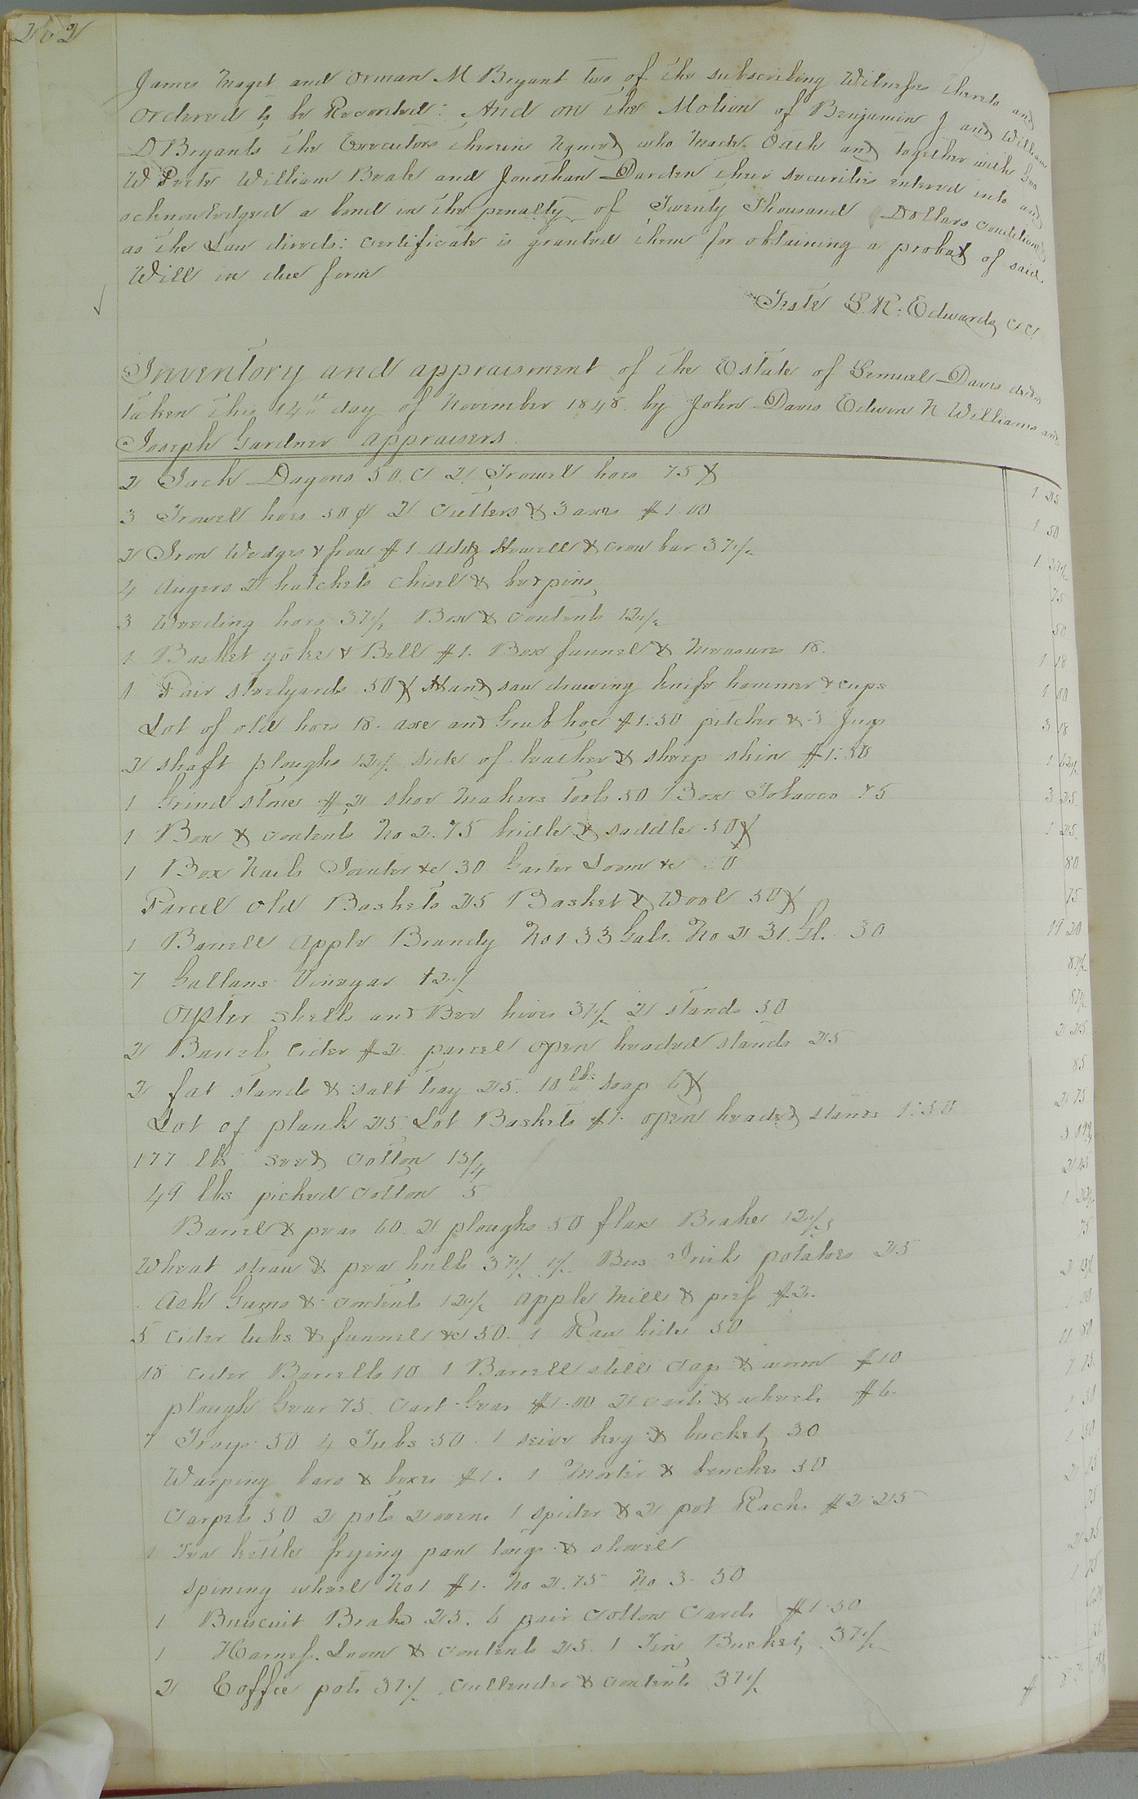 James Maget and Orman M Bryant two of the subscribing Witnesses thereto and
ordered to be Recorded: And on the Motion of Benjamin J and William
D Bryants the Executors therein Named who Made Oath and together with
W Peete William Beale and Jonathan Darden their securities entered into and
acknowledged a bond in the penalty of Twenty Thousand Dollars conditioned
as the Law directs: Certificate is granted them for obtaining a probat of said
Will in due form
Teste L. R. Edwards CC
Inventory and appraisment of the Estate of Lemuel Davis decd
Taken this 14th day of November 1848 by John Davis Edwin N Williams and
Joseph Gardner appraisers
2 Jack Dagons 50. C 2 Trowell hoes 75 1 25
3 Trowell hoes 50 2 Cutters & 3 axes $1.00 1 50
2 Iron Wedges & frow $1 Howell & crow bar 37½
4 augers 2 hatchets Chisel & pins 75
3 Weeding hoes 37½ Box & Contents 12½ 50
1 Basket yokes & Bell $1. Box funnel & Measures 18. 1 18
1 Pair steelyards 50 Hand saw drawing knife hammer & cups 1 00
Lot of old hoes 18. axe and Grub hoe $1.50 pitcher & 3 Jugs 3 18
2 shaft ploughs 12½ side of leather & sheep skin $1.50 1 62½
1 Grind stone $2 shoe Makers tools 50 1 Box Tobacco 75 3 25
1 Box & contents No 2. 75 bridle & saddle 50 1 25
1 Box Nails Jointer &c 30 Garter Loom &c 50 80
Parcel old Baskets 25 Basket & Wool 50 75
1 Barrell Apple Brandy No 1 33 Gals. No 2 31. Gl. 30 19 20
7 Gallons Vinegar 12½ 87½
Oyster shells and Bee hives 37½ 2 stands 50 87½
2 Barrels Cider $2. parcel open headed stands 25 2 25
2 fat stands & salt tray 25. 10 lbs soap 6 85
Lot of plank 25 Lot Baskets $1. open headed stands 1.50 2 75
177 lbs seed Cotton 1¾
49 lbs picked Cotton 5 2 45
Barrel & peas 60 2 ploughs 50 flax Brake 12½ 1 22½
Wheat straw & pea hulls 37½ Bus Irish potatoes 25
Ash Gums & contents 12½ apple Mill & press $2.
5 Cider tubs & funnel &c 50. 1 Raw hide 50
18 cider Barrells 10 1 Barrell still Cap & worm $10
plough Gear 75. Cart Gear $1.00 2 carts & wheels $6
7 Trays 50 4 Tubs 50 1 seive keg & bucket 50
Warping bars & boxes $1. 1 Morter & benches 50
Carpets 50 2 pots 2 ovens 1 spider & 2 pot Racks $2.25
1 Tea kettle frying pan tongs & shovel
spining wheel No 1 $1. No 2. 75 No 3. 50
1 Buiscuit Brake 25. 6 pair Cotton Cards $1.50
1 Harness Loom & Contents 25. 1 Tin Bucket 37½
2 Coffee pots 37½ Cullender & contents 37½